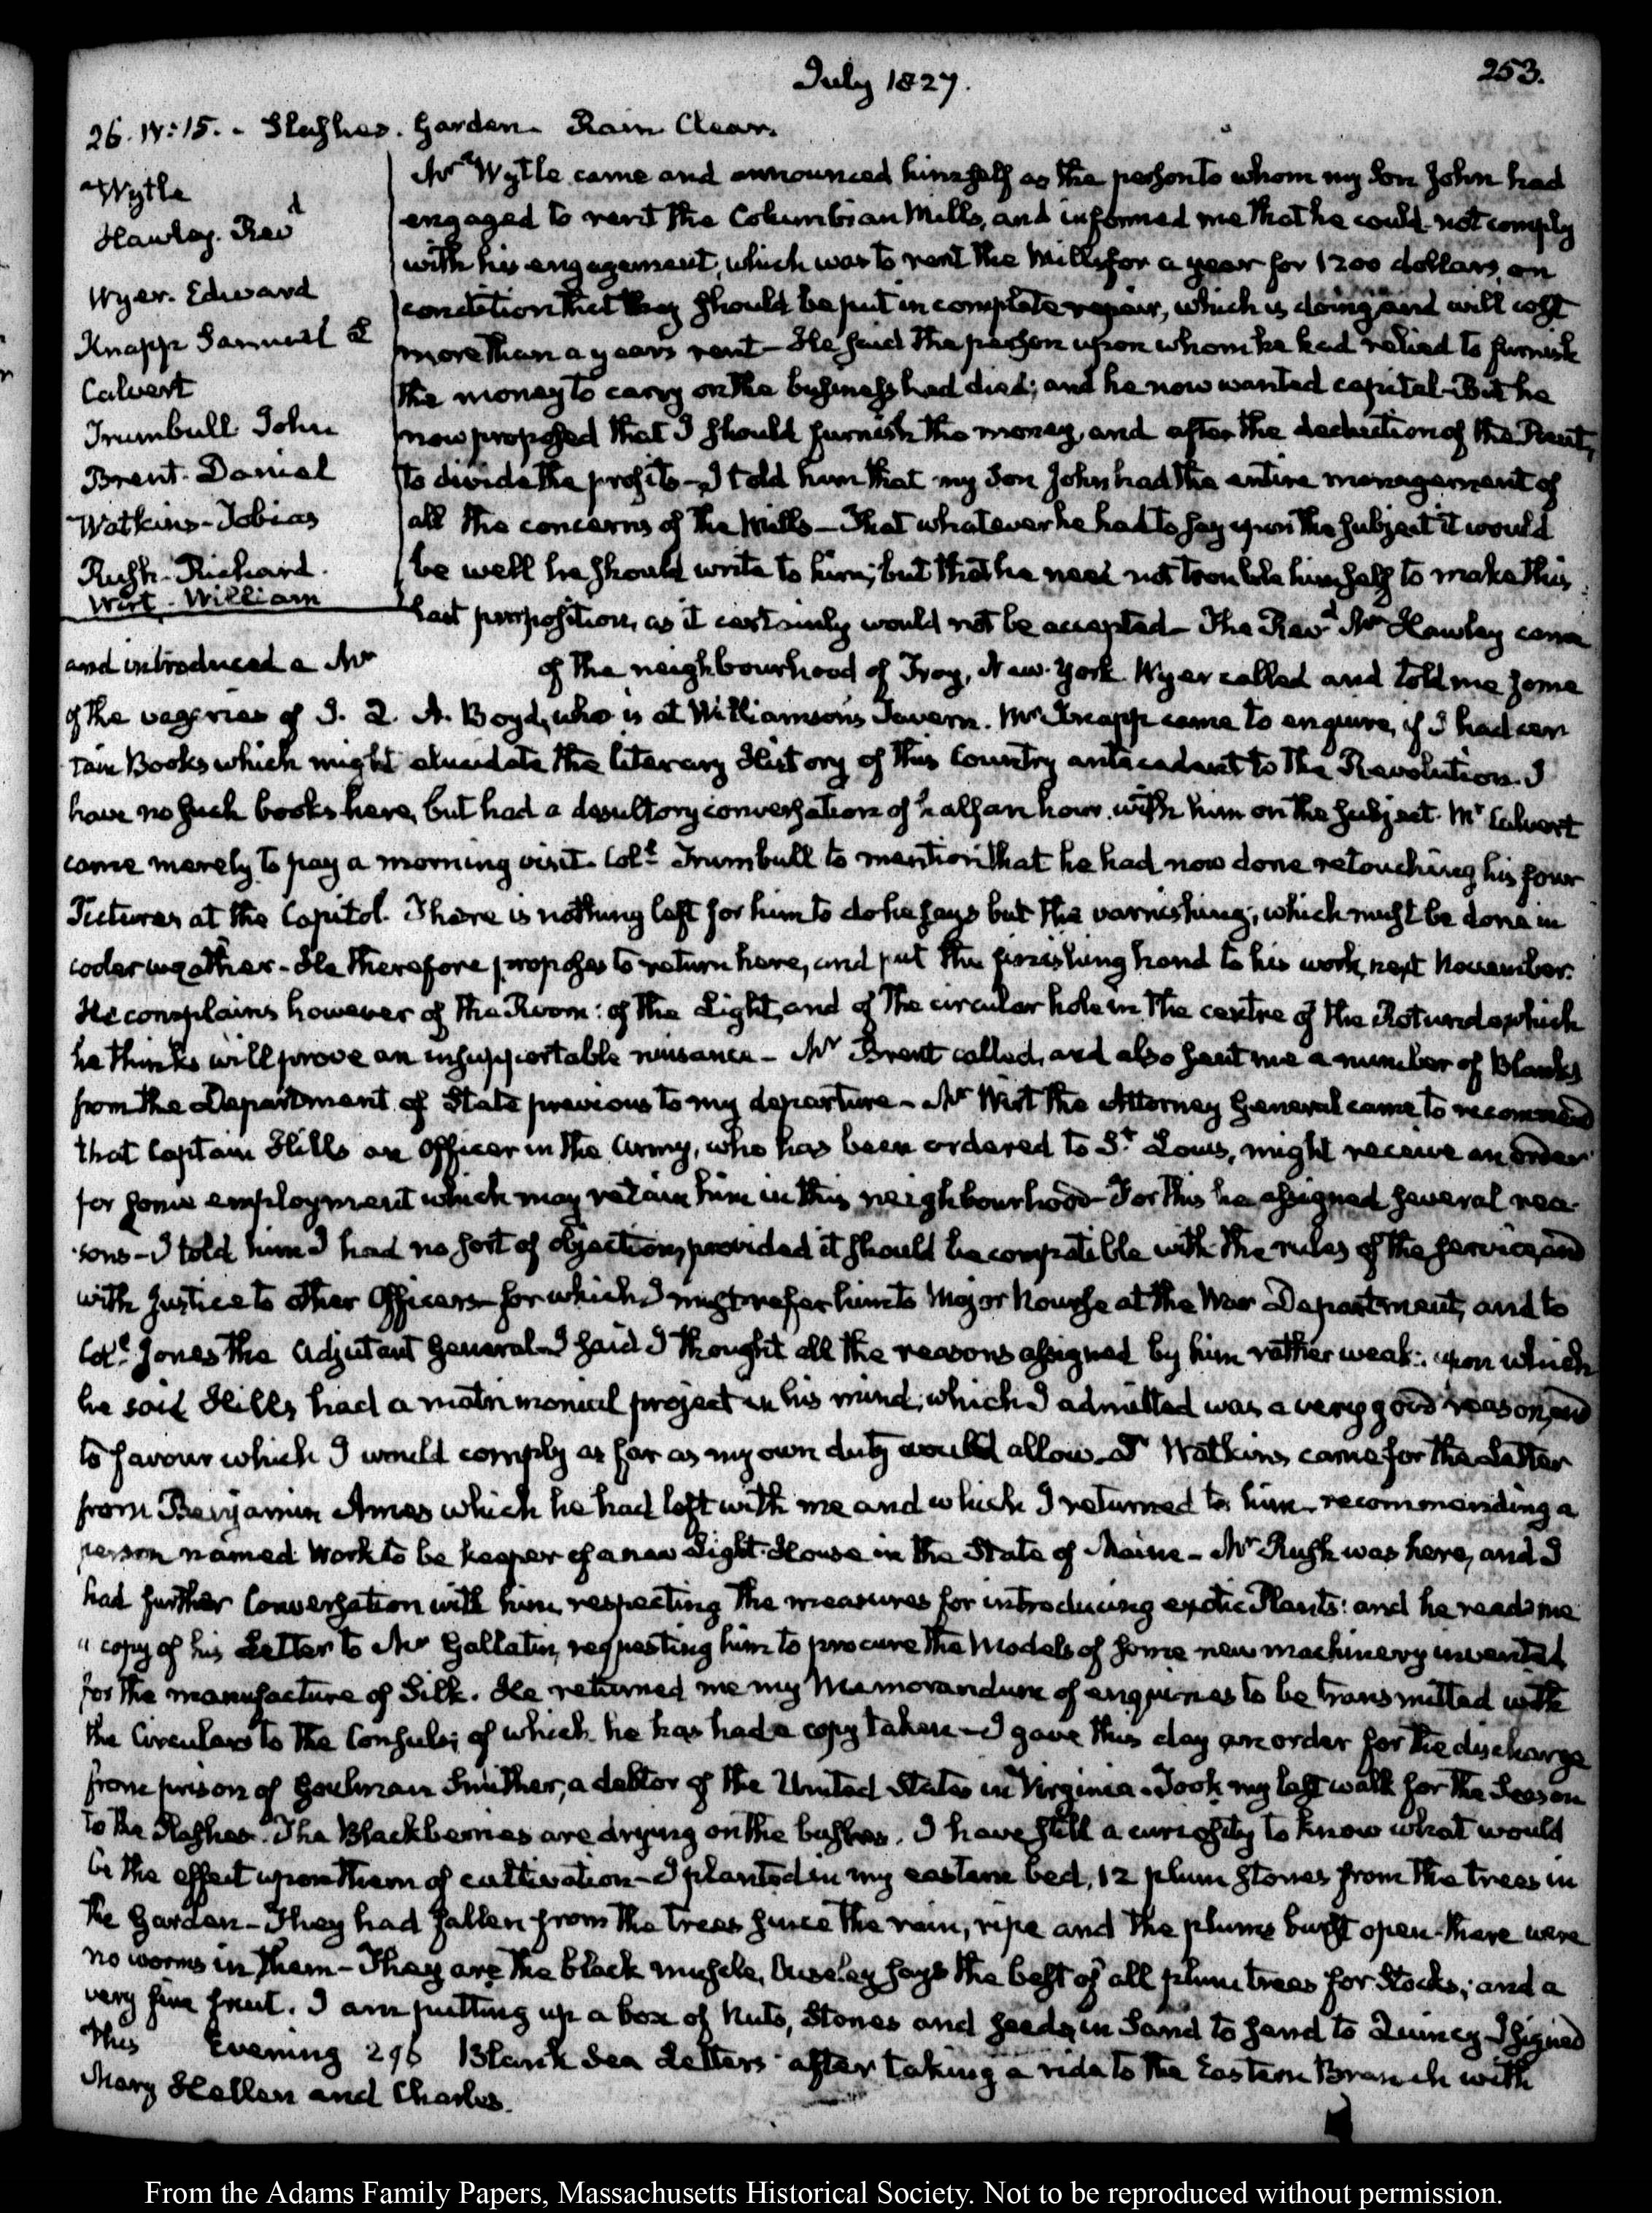 July 1827.
253.
26. IV:15. - Slashes. Garden. Rain. Clear.
Wytle
Hawley. Revd
Wyer. Edward
Knapp Samuel L
Calvert
Trumbull John
Brent. Daniel
Watkins - Tobias
Rush - Richard.
Wirt - William
Mr Wytle came and announced himself as the person to whom my Son John had
engaged to rent the Columbian Mills, and informed me that he could not comply
with his engagement, which was to rent the Mills for a year for 1200 dollars, on
condition that they should be put in complete repair, which is doing and will cost
more than a years rent - He said the person upon whom he had relied to furnish
the money to carry on the business had died; and he now wanted capital - But he
now proposed that I should furnish the money, and after the deduction of the Rent,
to divide the profits - I told him that my Son John had the entire management of
all the concerns of the Mills - That whatever he had to say upon the subject it would
be well he should write to him; but that he need not trouble himself to make this
last proposition, as it certainly would not be accepted - The Revd Mr Hawley came
and introduced a Mr of the neighbourhood of Troy, New-York. Wyer called and told me some
of the vagaries of J. Q. A. Boyd, who is at Williamson's Tavern. Mr Knapp came to enquire, if I had cer
tain Books which might elucidate the literary History of this Country antecedent to the Revolution. I
have no such books here, but had a desultory conversation of half an hour with him on the subject. Mr Calvert
came merely to pay a morning visit. Coll Trumbull to mention that he had now done retouching his four
Pictures at the Capitol. There is nothing left for him to do he says but the varnishing, which must be done in
cooler weather - He therefore proposes to return here, and put the finishing hand to his work, next November.
He complains however of the Room: of the Light, and of the circular hole in the centre of the Rotunda which
he thinks will prove an insupportable nuisance - Mr Brent called, and also sent me a number of Blanks
from the Department of State previous to my departure - Mr Wirt the Attorney General came to recommend
that Captain Hills an Officer in the Army, who has been ordered to St Louis, might receive an order
for some employment which may retain him in this neighbourhood - For this he assigned several rea-
sons - I told him I had no sort of objection, provided it should be compatible with the rules of the service, and
with justice to other Officers - for which I must refer him to Major Nourse at the War Department, and to
Coll Jones the Adjutant General - I said I thought all the reasons assigned by him rather weak: upon which
he said Hills had a matrimonial project in his mind; which I admitted was a very good reason, and
to favour which I would comply as far as my own duty would allow. Dr Watkins came for the Letter
from Benjamin Ames which he had left with me and which I returned to him - recommending a
person named Work to be keeper of a new Light-House in the State of Maine - Mr Rush was here, and I
had further Conversation with him, respecting the measures for introducing exotic Plants: and he read me
a copy of his Letter to Mr Gallatin, requesting him to procure the Models of some new machinery invented
for the manufacture of Silk. He returned me my Memorandum of enquiries to be transmitted with
the Circulars to the Consuls; of which he has had a copy taken - I gave this day an order for the discharge
from prison of Smither, a debtor of the United States in Virginia. Took my last walk for the Season
to the Slashes. The Blackberries are drying on the bushes. I have still a curiosity to know what would
be the effect upon them of cultivation - I planted in my eastern bed, 12 plum stones from the trees in
the Garden - They had fallen from the trees since the rain, ripe and the plums burst open - there were
no worms in them - They are the black muscle, Ouseley says the best of all plum trees for Stocks; and a
very fine fruit. I am putting up a box of Nuts, Stones and seeds, in Sand to send to Quincy - I signed
this Evening 296 Blank Sea Letters after taking a ride to the Eastern Branch with
Mary Hellen and Charles.
From the Adams Family Papers, Massachusetts Historical Society. Not to be reproduced without permission.